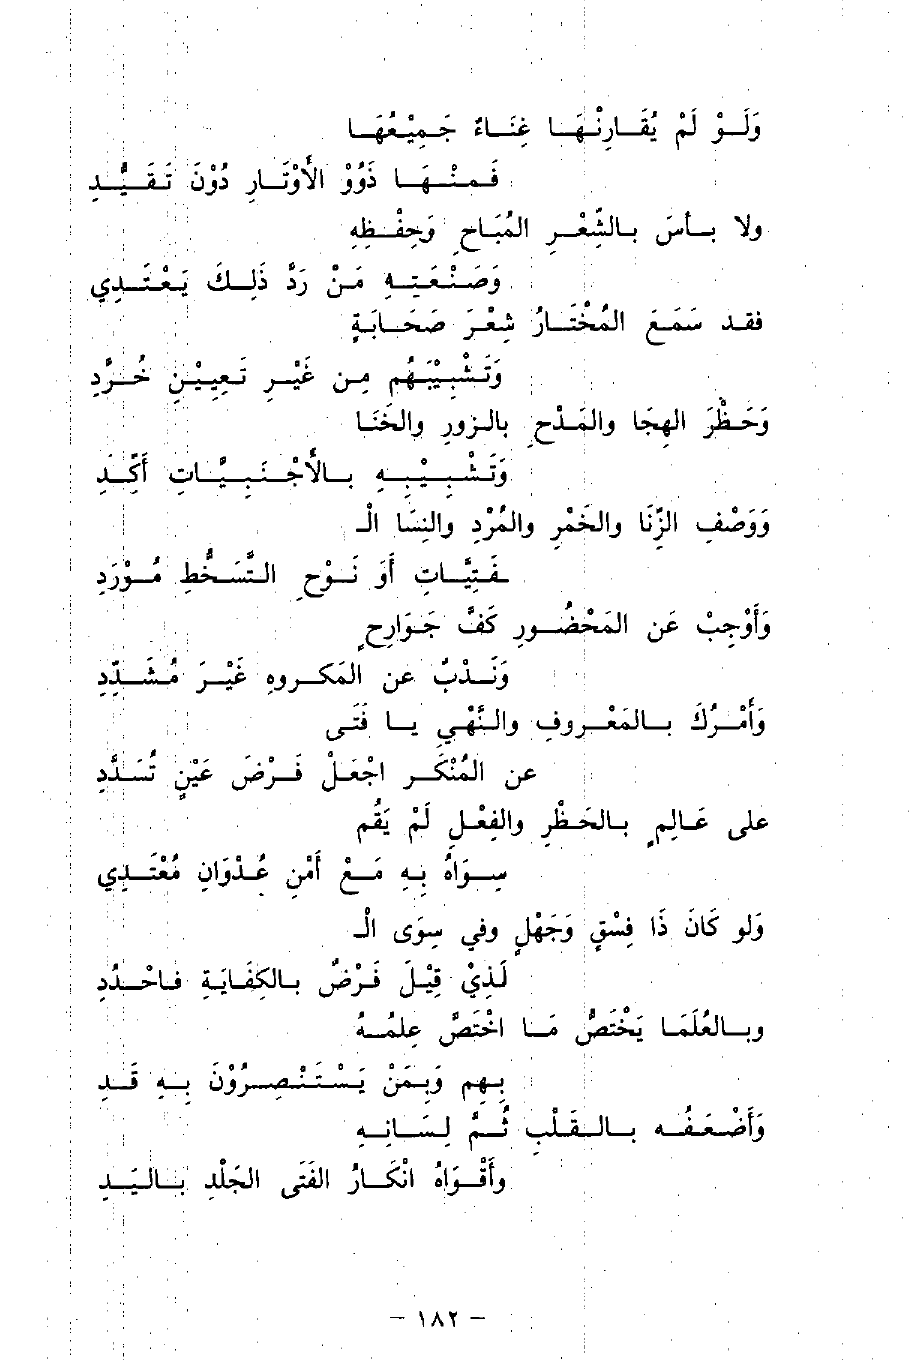 وَلَوْ لَمْ يُقَارِنْهَا غِنَاءٌ جَمِيْعُهَا
فَمِنْهَا ذَوُوْ الأَوْتَارِ دُوْنَ تَقَيُّدِ
ولا بأسَ بالشِّعْرِ المُبَاحِ وَحِفْظِهِ
وَصَنْعَتِهِ مَنْ رَدَّ ذَلِكَ يَعْتَدِي
فقد سَمَعَ المُخْتَارُ شِعْرَ صَحَابَةٍ
وَتَشْبِيْبَهُم مِن غَيْرِ تَعِيِيْنِ خُرَّدِ
وَحَظْرَ الهِجَا والمَدْحِ بالزورِ والخَنَا
وَتَشْبِيْبِهِ بالأَجْنَبِيَّاتِ أَكِّدَ
وَوَصْفِ الزِّنَا والخَمْرِ والمُرْدِ والنِسَا الْـ
ـفَتِيَّاتِ أَوَ نَوْحِ التَّسَخُّطِ مُوْرَدِ
وَأَوْجِبْ عَن المَحْضُورِ كَفَّ جَوَارِحٍ
وَنَدْبٌ عن المَكروهِ غَيْرَ مُشَدِّدِ
وَأَمْرُكَ بالمَعْروفِ والنَّهْيِ يا فَتَى
عن المُنْكَرِ اجْعَلْ فَرْضَ عَيْنٍ تُسَدَّدِ
على عَالِمٍ بالحَظْرِ والفِعْلِ لَمْ يَقُم
سِوَاهُ بِهِ مَعْ أَمْنِ عُدْوَانِ مُعْتَدِي
وَلو كَانَ ذَا فِسْقٍ وَجَهْلٍ وفي سِوَى الْـ
لَذِيْ قِيْلَ فَرْضٌ بالكِفَايَةِ فاحْدُدِ
وبالعُلَمَا يَخْتَصُّ مَا اخْتَصَّ عِلمُهُ
بِهِم وَبِمَنْ يَسْتَنْصِرُوْنَ بِهِ قَدِ
وَأَضْعَفُه بالقَلْبِ ثُمَّ لِسَانِهِ
وأَقْوَاهُ انْكَارُ الفَتَى الجَلْدِ باليَدِ
- ١٨٢ -